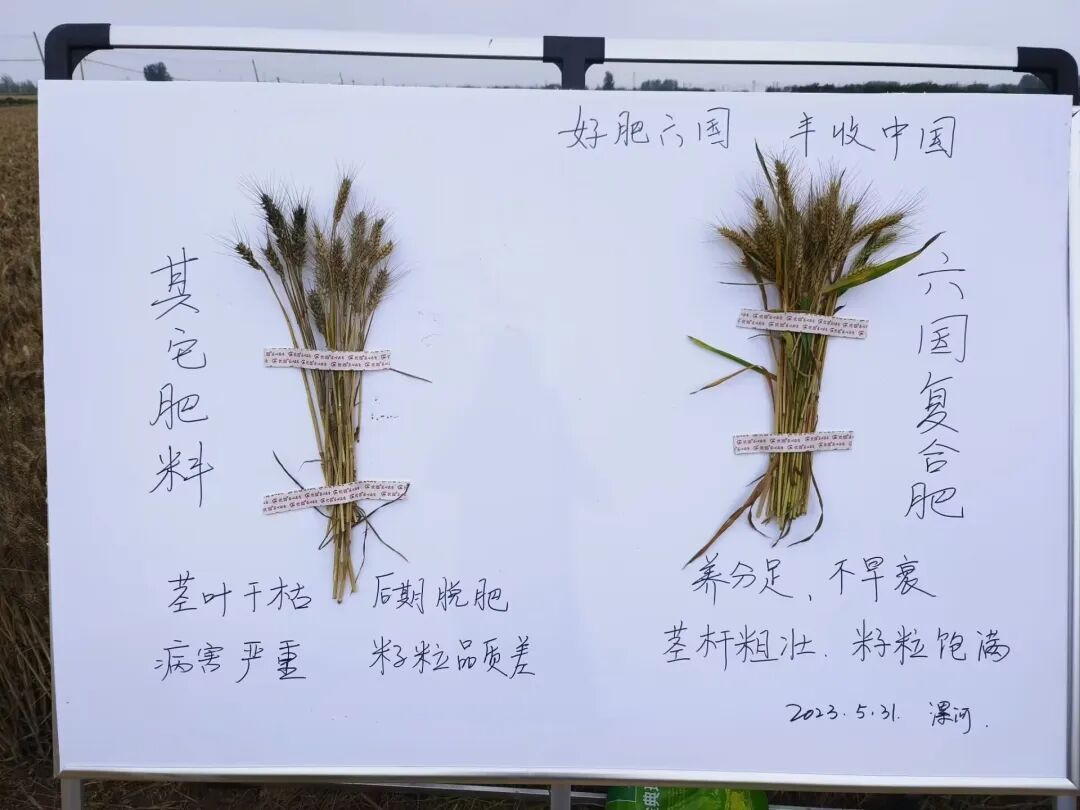 好肥六国 丰收中国
其它肥料
六国复合肥
茎叶干枯 后期脱肥
病害严重 籽粒品质差
养分足、不早衰
茎杆粗壮、籽粒饱满
2023.5.31. 漯河.